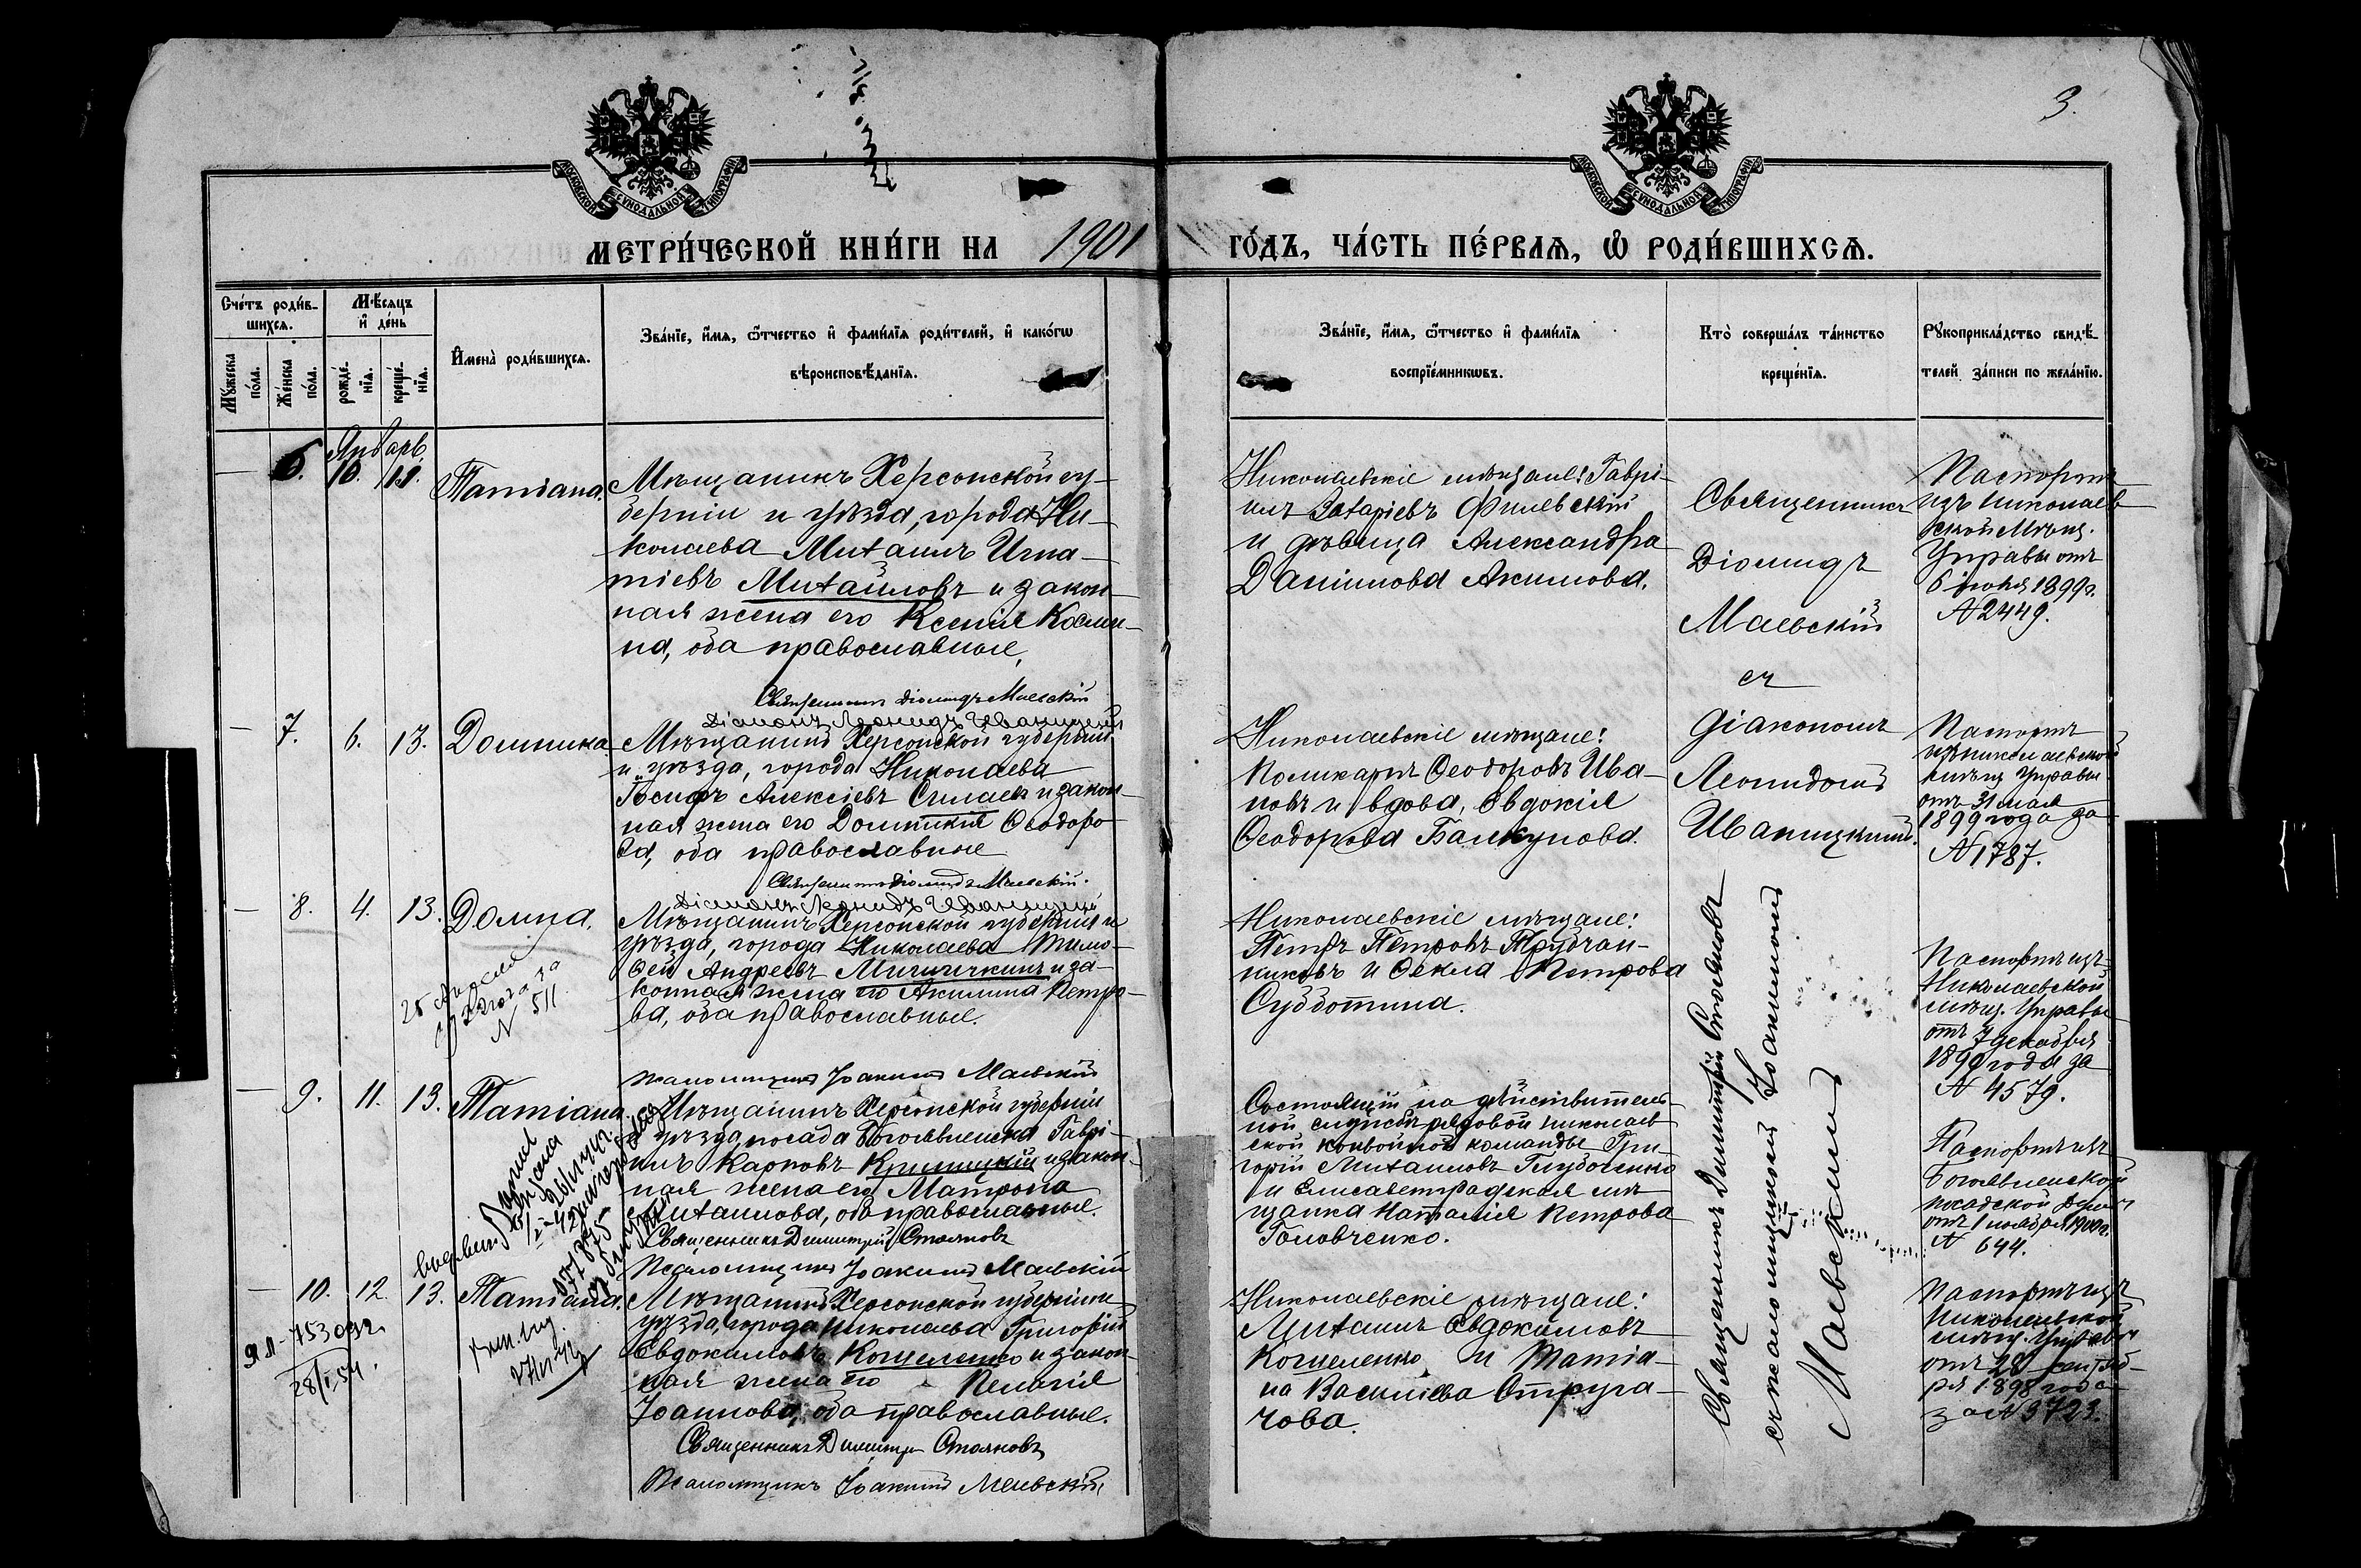 3.
МОСКОВСКОЙ СѴНОДАЛЬНОЙ ТИПОГРАФІИ
МОСКОВСКОЙ СѴНОДАЛЬНОЙ ТИПОГРАФІИ
МЕТРИ́ЧЕСКОЙ КНИ́ГИ НА 1901 ГО́ДЪ, ЧА́СТЬ ПЕ́РВАЯ, Ѽ РОДИ́ВШИХСѦ.
Сче́тъ роди́в-
шихсѧ.
Мꙋ́жеска
по́ла.
Же́нска
по́ла.
Мѣ́сѧцъ
и҆ де́нь
рожде́-
нїѧ.
креще́-
нїѧ.
И҆мена̀ роди́вшихсѧ.
Зва́нїе, и҆́мѧ, ѻ҆́тчество и҆ фами́лїѧ роди́телей, и҆ како́гѡ
вѣроисповѣ́данїѧ.
Зва́нїе, и҆́мѧ, ѻ҆́тчество и҆ фами́лїѧ
воспрїе́мникѡвъ.
Кто̀ соверша́лъ та́инство
креще́нїѧ.
Рꙋкоприкла́дство свидѣ́-
телей за́писи по жела́нїю.
Январь
— 6. 10. 11. Татіана.
Мѣщанинъ Херсонской гу-
берніи и уѣзда, города Ни-
колаева Михаилъ Игна-
тіевъ Михайловъ и закон-
ная жена его Ксенія Косми-
на, оба православные,
Священникъ Діомидъ Маевскій
Діаконъ Леонидъ Иваницкій
Николаевскіе мѣщане: Гаврі-
илъ Захаріевъ Филевскій
и дѣвица Александра
Даніилова Акимова.
Священникъ
Діомидъ
Маевскій
съ
діакономъ
Леонидомъ
Иваницкимъ.
Паспортъ
изъ Николаев
ской Мѣщ.
Управы отъ
6 іюня 1899 г.
№ 2449.
— 7. 6. 13. Домника
Мѣщанинъ Херсонской губерніи
и уѣзда, города Николаева
Іосифъ Алексіевъ Силаевъ и закон-
ная жена его Домникія Ѳеодоро-
ва, оба православные
Священникъ Діомидъ Маевскій.
Діаконъ Леонидъ Иваницкій
Николаевскіе мѣщане:
Поликарпъ Ѳеодоровъ Ива-
новъ и вдова, Евдокія
Ѳеодорова Балкунова.
Паспортъ
изъ Николаевской
мѣщ. Управы
отъ 31 мая
1899 года за
№ 1787.
— 8. 4. 13. Домна.
Мѣщанинъ Херсонской губерніи и
уѣзда, города Николаева Тимо-
ѳей Андреевъ Мичичкинъ и за-
конная жена его Акилина Петро-
ва, оба православные.
Псаломщикъ Іоакимъ Маевскій
№ 511.
Николаевскіе мѣщане:
Петръ Петровъ Трубчан-
никовъ и Ѳекла Петрова
Субботина.
Паспортъ изъ
Николаевской
мѣщ. Управы
отъ 7 декабря
1899 года за
№ 4579.
— 9. 11. 13. Татіана.
Мѣщанинъ Херсонской губерніи
и уѣзда, посада Богоявленска Гаврі-
илъ Карповъ Криницкій и закон-
ная жена его Матрона
Михаилова, оба православные.
Священникъ Димитрій Стояновъ
Псаломщикъ Іоакимъ Маевскій
Состоящій на дѣйствитель-
ной службѣ рядовой Николаев
ской конвойной команды Гри-
горій Михаиловъ Глубоченко
и Елисаветградская мѣ-
щанка Наталія Петрова
Головченко.
Священникъ Димитрій Стояновъ
съ псаломщикомъ Іоакимомъ
Маевскимъ
Паспортъ изъ
Богоявленской
посадской Думы
отъ 1 ноября 1900 г.
№ 644.
— 10. 12. 13. Татіана.
Мѣщанинъ Херсонской губерніи и
уѣзда, города Николаева Григорій
Евдокимовъ Кошеленко и закон-
ная жена его Пелагія
Іоаннова, оба православные.
Священникъ Димитрій Стояновъ
Псаломщикъ Іоакимъ Маевскій
28/I 54.
Николаевскіе мѣщане:
Михаилъ Евдокимовъ
Кошеленко и Татіа-
на Василіева Отруга-
чова.
Паспортъ изъ
Николаевской
мѣщ. Управы
отъ 28 сентяб-
ря 1898 года
за № 3723.